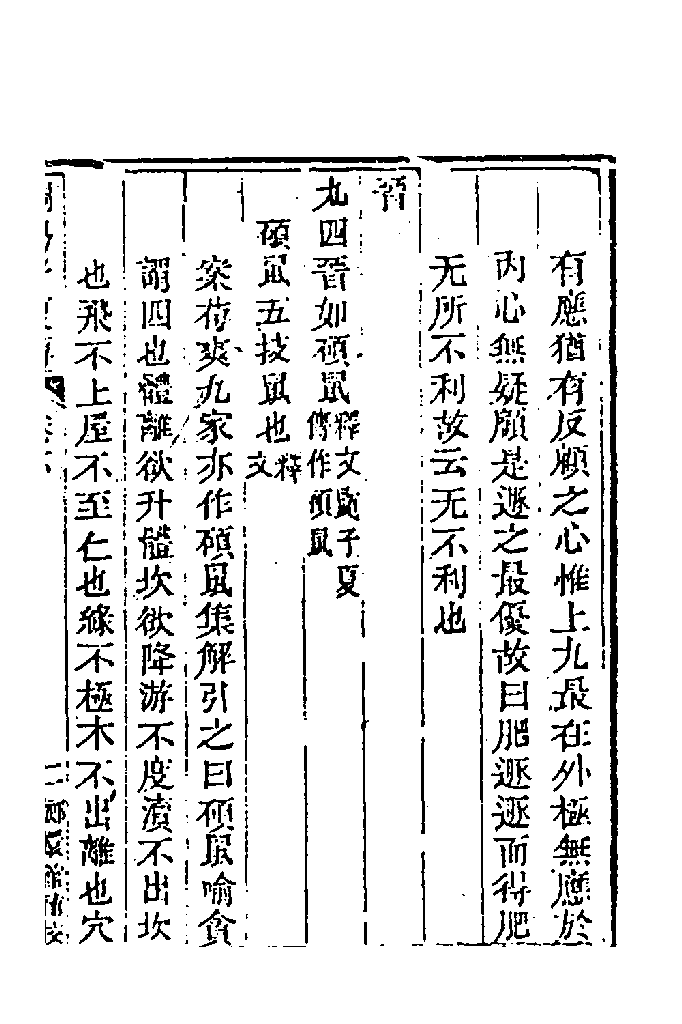 有應猶有反顧之心惟上九最在外極無應於
內心無疑顧是遯之最優故曰肥遯遯而得肥
无所不利故云无不利也
晉
九四晉如碩鼠釋文碩子夏
傳作碩鼠
碩鼠五技鼠也釋
文
案荀爽九家亦作碩鼠集解引之曰碩鼠喻貪
謂四也體離欲升體坎欲降游不度瀆不出坎
也飛不上屋不至仁也緣不極木不出離也穴